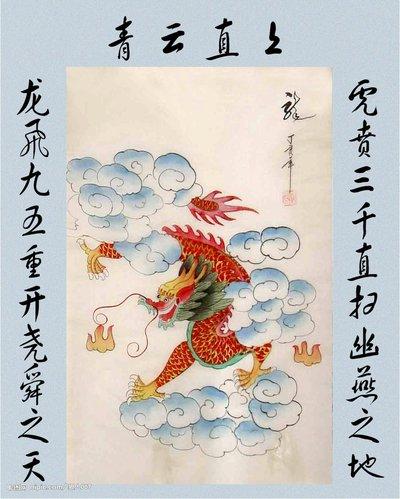 青云直上
虎贲三千直扫幽燕之地
龙飞九五重开尧舜之天
龍
丁亥年